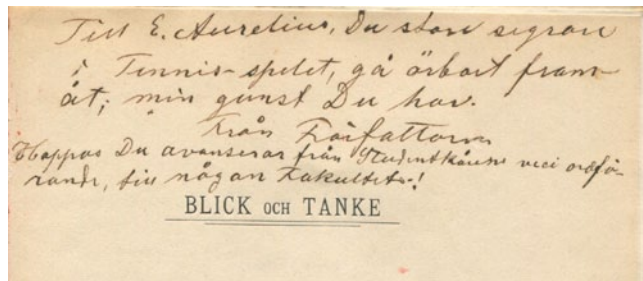 Till E. Aurelius, Du store segrare
i Tennis-spelet, gå örbart fram-
åt; min gunst Du har.
Från Författarn
Hoppas Du avanserar från Studentkårens vice ordfö-
rande, till någon Fakultets-!
BLICK OCH TANKE